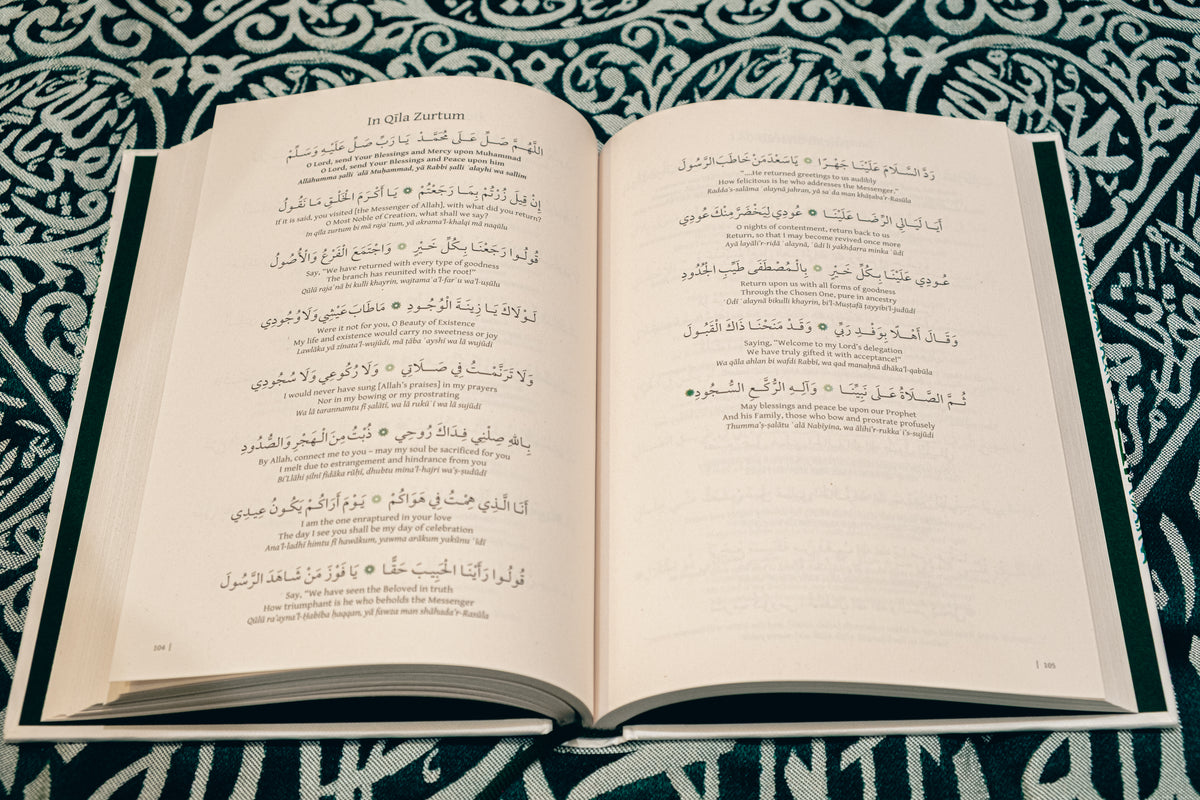 In Qīla Zurtum
اللَّهُمَّ صَلِّ عَلَى مُحَمَّدْ يَا رَبِّ صَلِّ عَلَيْهِ وَسَلِّمْ
O Lord, send Your Blessings and Mercy upon Muhammad
O Lord, send Your Blessings and Peace upon him
Allāhumma ṣalli ʿalā Muḥammad, yā Rabbi ṣalli ʿalayhi wa sallim
إِنْ قِيلَ زُرْتُمْ بِمَا رَجَعْتُمْ يَا أَكْرَمَ الْخَلْقِ مَا نَقُولُ
If it is said, you visited [the Messenger of Allah], with what did you return?
O Most Noble of Creation, what shall we say?
In qīla zurtum bi mā rajaʿtum, yā akrama'l-khalqi mā naqūlu
قُولُوا رَجَعْنَا بِكُلِّ خَيْرٍ وَاجْتَمَعَ الْفَرْعُ وَالْأُصُولُ
Say, "We have returned with every type of goodness
"The branch has reunited with the root!"
Qūlū rajaʿnā bi kulli khayrin, wajtamaʿa'l-farʿu wa'l-uṣūlu
لَوْلَاكَ يَا زِينَةَ الْوُجُودِ مَاطَابَ عَيْشِي وَلَا وُجُودِي
Were it not for you, O Beauty of Existence
My life and existence would carry no sweetness or joy
Lawlāka yā zīnata'l-wujūdi, mā ṭāba ʿayshī wa lā wujūdī
وَلَا تَرَنَّمْتُ فِي صَلَاتِي وَلَا رُكُوعِي وَلَا سُجُودِي
I would never have sung [Allah's praises] in my prayers
Nor in my bowing or my prostrating
Wa lā tarannamtu fī ṣalātī, wa lā rukūʿī wa lā sujūdī
بِاللهِ صِلْنِي فِدَاكَ رُوحِي ذُبْتُ مِنَ الْهَجْرِ وَالصُّدُودِ
By Allah, connect me to you – may my soul be sacrificed for you
I melt due to estrangement and hindrance from you
Bi'Llāhi ṣilnī fidāka rūḥī, dhubtu mina'l-hajri wa'ṣ-ṣudūdi
أَنَا الَّذِي هِمْتُ فِي هَوَاكُمْ يَوْمَ أَرَاكُمْ يَكُونُ عِيدِي
I am the one enraptured in your love
The day I see you shall be my day of celebration
Ana'l-ladhī himtu fī hawākum, yawma arākum yakūnu ʿīdī
قُولُوا رَأَيْنَا الْحَبِيبَ حَقًّا يَا فَوْزَ مَنْ شَاهَدَ الرَّسُولَ
Say, "We have seen the Beloved in truth
How triumphant is he who beholds the Messenger
Qūlū ra'ayna'l-Ḥabība ḥaqqan, yā fawza man shāhada'r-Rasūla
104 |
رَدَّ السَّلَامَ عَلَيْنَا جَهْرًا يَاسَعْدَ مَنْ خَاطَبَ الرَّسُولَ
"...He returned greetings to us audibly
How felicitous is he who addresses the Messenger."
Radda's-salāma ʿalaynā jahran, yā saʿda man khāṭaba'r-Rasūla
أَيَا لَيَالِي الرِّضَا عَلَيْنَا عُودِي لِيَخْضَرَّ مِنْكَ عُودِي
O nights of contentment, return back to us
Return, so that I may become revived once more
Ayā layāli'r-riḍā ʿalaynā, ʿūdī li yakhḍarra minka ʿūdī
عُودِي عَلَيْنَا بِكُلِّ خَيْرٍ بِالْمُصْطَفَى طَيِّبِ الْجُدُودِ
Return upon us with all forms of goodness
Through the Chosen One, pure in ancestry
ʿŪdī ʿalaynā bikulli khayrin, bi'l-Muṣṭafā ṭayyibi'l-judūdi
وَقَالَ أَهْلًا بِوَفْدِ رَبِّي وَقَدْ مَنَحْنَا ذَاكَ الْقَبُولَ
Saying, "Welcome to my Lord's delegation
We have truly gifted it with acceptance!"
Wa qāla ahlan bi wafdi Rabbi, wa qad manaḥnā dhāka'l-qabūla
ثُمَّ الصَّلَاةُ عَلَى نَبِيِّنَا وَآلِهِ الرُّكَّعِ السُّجُودِ
May blessings and peace be upon our Prophet
And his Family, those who bow and prostrate profusely
Thumma'ṣ-ṣalātu ʿalā Nabiyina, wa ālihi'r-rukkaʿi's-sujūdi
| 105